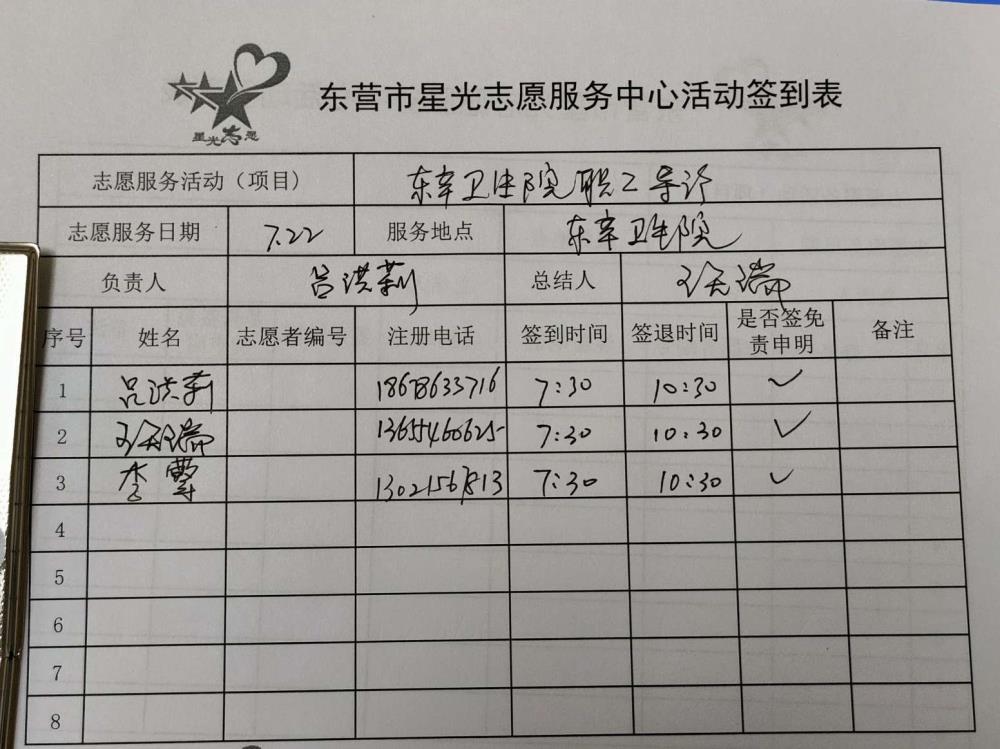 星光志愿
东营市星光志愿服务中心活动签到表
志愿服务活动（项目） 东辛卫生院职工导诊
志愿服务日期 7.22 服务地点 东辛卫生院
负责人 吕洪莉 总结人
序号 姓名 志愿者编号 注册电话 签到时间 签退时间 是否签免责申明 备注
1 吕洪莉 18678633716 7:30 10:30 ✓
2 13655460625 7:30 10:30 ✓
3 李霞 13021567813 7:30 10:30 ✓
4
5
6
7
8